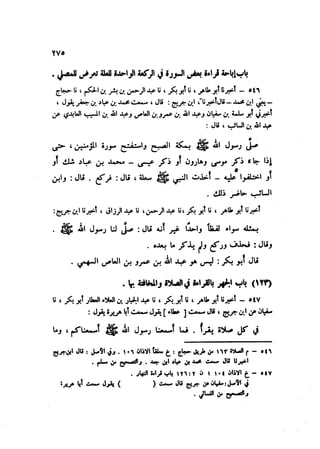 ٢٧٥
باب إباحة قراءة بعض السورة في الركعة الواحدة للعلة تعرض للمصلي .
٥٤٦ – أخبرنا أبو طاهر ، نا أبو بكر ، نا عبد الرحمن بن بشر بن الحكم ، نا حجاج
– يعني ابن محمد – قال أخبرنا ، ابن جريج : قال ، سمعت محمد بن عباد بن جعفر يقول ،
أخبرني أبو سلمة بن سفيان وعبد الله بن عمرو بن العاص وعبد الله بن المسيب العابدي عن
عبد الله بن السائب ، قال :
صلى رسول الله ﷺ بمكة الصبح واستفتح سورة المؤمنين ، حتى
إذا جاء ذكر موسى وهارون أو ذكر عيسى – محمد بن عباد شك أو
اختلفوا عليه – أخذت النبي ﷺ سعلة ، قال : فركع . قال : وابن
السائب حاضر ذلك .
أخبرنا أبو طاهر ، نا أبو بكر ، نا عبد الرحمن ، نا عبد الرزاق ، أخبرنا ابن جريج :
بمثله سواء لفظاً واحداً غير أنه قال : صلى لنا رسول الله ﷺ .
وقال : فحذف وركع ولم يذكر ما بعده .
قال أبو بكر : ليس هو عبد الله بن عمرو بن العاص السهمي .
(١٢٣) باب الجهر بالقراءة في الصلاة والمخافتة بها .
٥٤٧ – أخبرنا أبو طاهر ، نا أبو بكر ، نا عبد الجبار بن العلاء العطار أبو بكر ، نا
سفيان عن ابن جريج ، قال سمعت [ عطاء ] يقول سمعت أبا هريرة يقول :
في كل صلاة يقرأ . فما أسمعنا رسول الله ﷺ أسمعناكم ، وما
٥٤٦ – م الصلاة ١٦٣ من طريق حجاج : خ معلقاً الأذان ١٠٦ . وفي الأصل : قال جريج ابن
اخبرنا قال سمعت محمد بن عباد ابن جعد . والتصحيح من مسلم .
٥٤٧ – خ الأذان ١٠٤ ؛ ن ٢ : ١٢٦ باب قراءة النهار .
في الأصل : سفيان عن جريج قال سمعت ( ) يقول سمعت أبا هريرة
والتصحيح من النسائي .